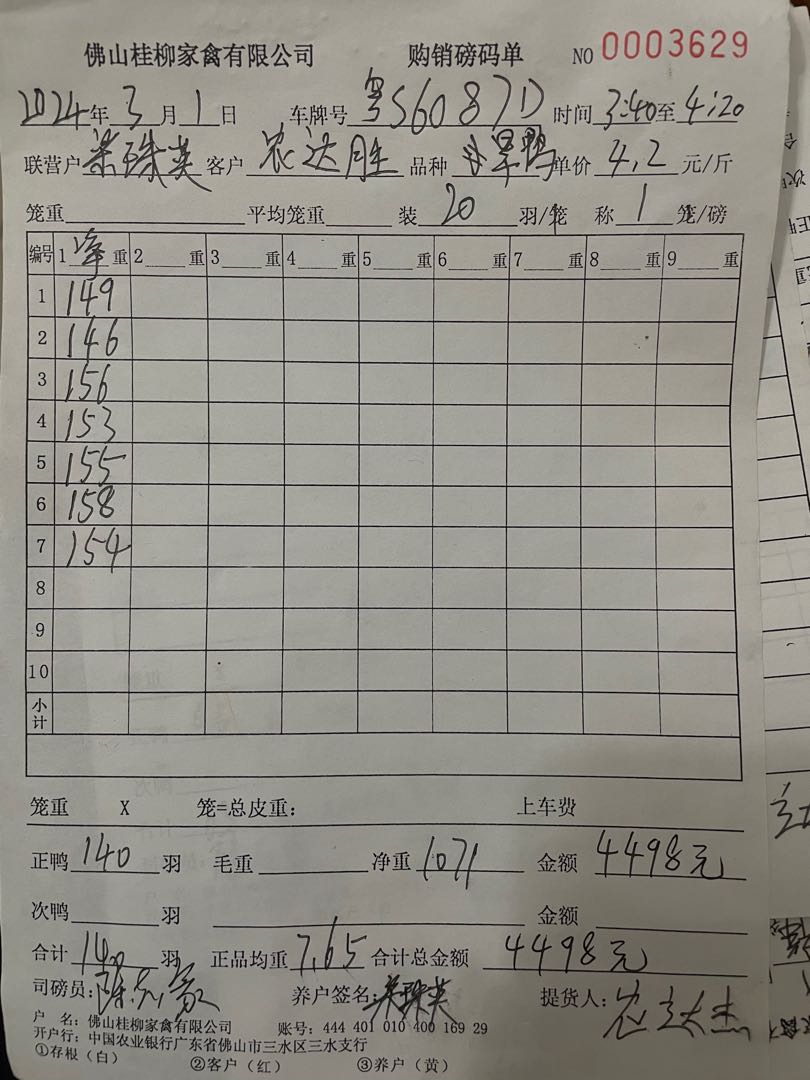 佛山桂柳家禽有限公司 购销磅码单 NO 0003629
2024年3月1日 车牌号 粤S6087D 时间 3:40至4:20
联营户 梁珠英 客户 农达胜 品种 鸭 单价 4.2 元/斤
笼重 平均笼重 装 20 羽/笼 称 1 笼/磅
编号 1 净 重 2 重 3 重 4 重 5 重 6 重 7 重 8 重 9 重
1 149
2 146
3 156
4 153
5 155
6 158
7 154
8
9
10
小计
笼重 X 笼=总皮重: 上车费
正鸭 140 羽 毛重 净重 1071 金额 4498元
次鸭 羽 金额
合计 140 羽 正品均重 7.65 合计总金额 4498元
司磅员: 陈 养户签名: 梁珠英 提货人: 农达
户 名: 佛山桂柳家禽有限公司 账号: 444 401 010 400 169 29
开户行: 中国农业银行广东省佛山市三水区三水支行
①存根(白) ②客户(红) ③养户(黄)